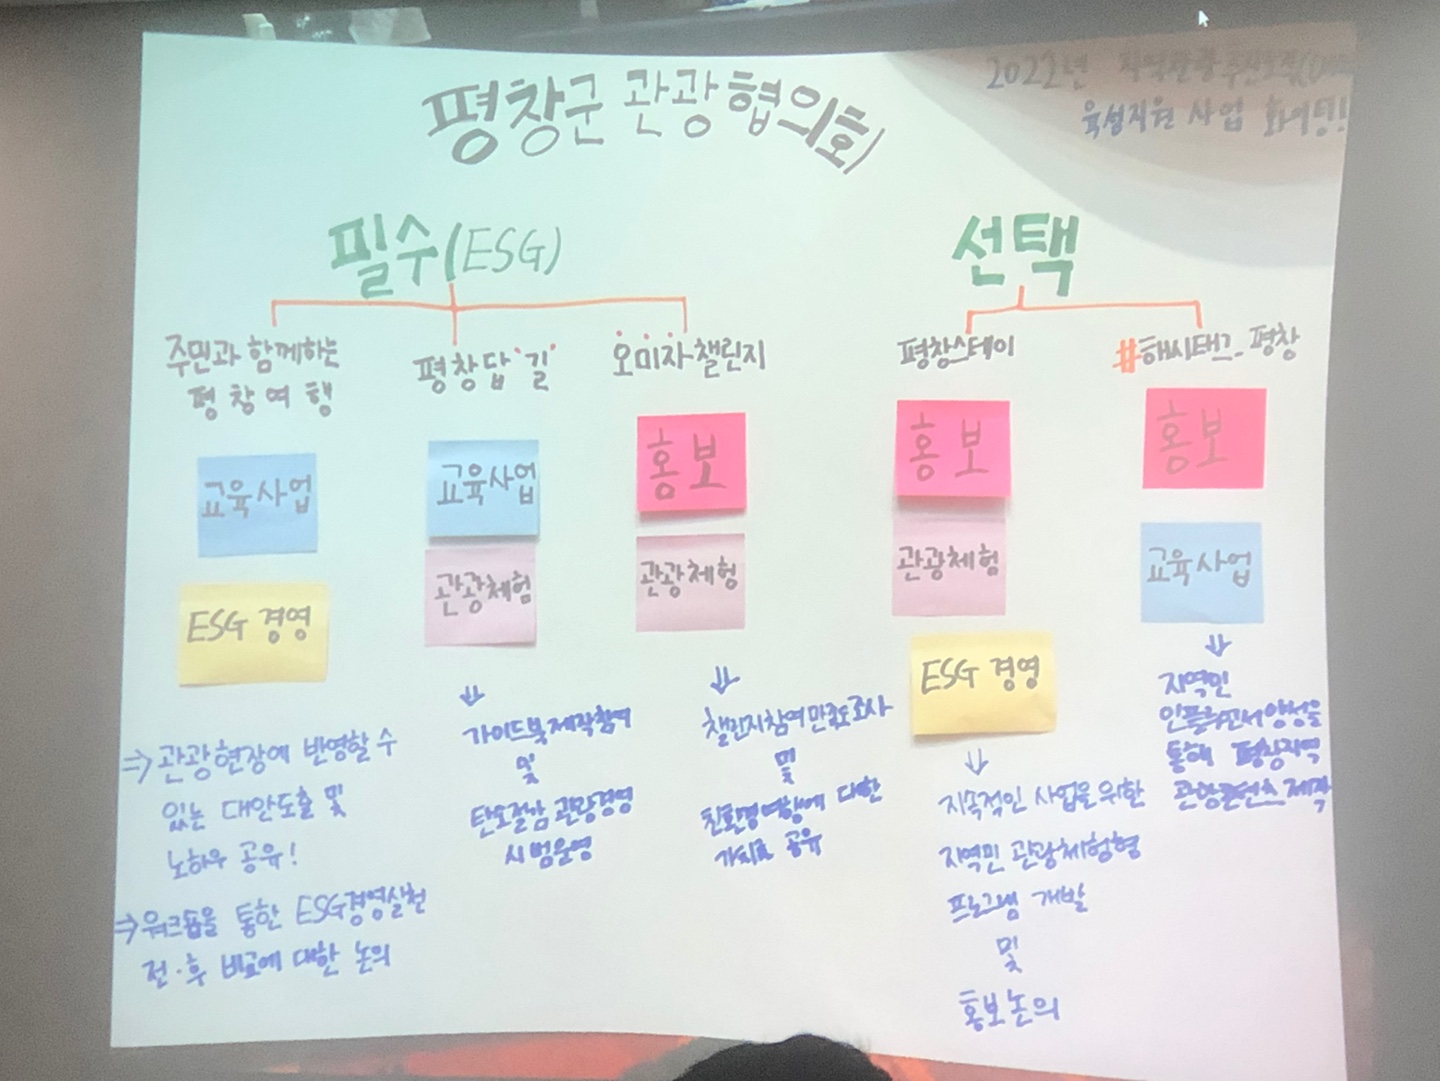 평창군 관광협의회
2022년 지역관광추진조직(DMO)
육성지원 사업 화이팅!
필수(ESG)
주민과 함께하는
평창여행
교육사업
ESG 경영
⇒ 관광현장에 반영할 수
있는 대안도출 및
노하우 공유!
⇒ 워크숍을 통한 ESG경영실천
전·후 비교에 대한 논의
평창답'길'
교육사업
관광체험
⇓
가이드북제작참여
및
탄소절감 관광경영
시범운영
오미자챌린지
홍보
관광체험
⇓
챌린지참여만족도조사
및
친환경여행에 대한
가치 공유
선택
평창스테이
홍보
관광체험
ESG 경영
⇓
지속적인 사업을 위한
지역민 관광체험형
프로그램 개발
및
홍보논의
#해시태그_평창
홍보
교육사업
⇓
지역민
인플루언서양성을
통해 평창지역
관광콘텐츠 제작